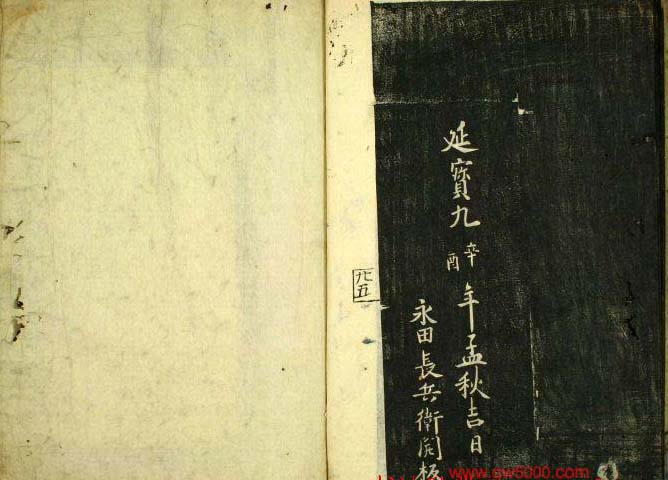 延寶九辛酉年孟秋吉日
永田長兵衛開板
九五
www.sw5000.com